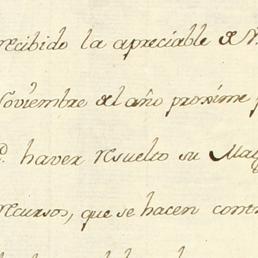 recibido la apreciable de
Noviembre del año proxime
haver resuelto su Mag
recursos, que se hacen contr